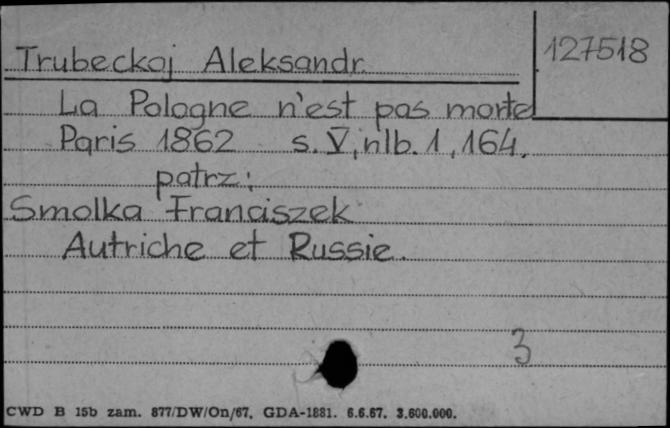 Trubeckoj Aleksandr
127518
La Pologne n'est pas morte
Paris 1862 s. V, nlb. 1, 164.
patrz:
Smolka Franciszek
Autriche et Russie.
3
CWD B 15b zam. 877/DW/On/67. GDA-1881. 6.6.67. 3.600.000.